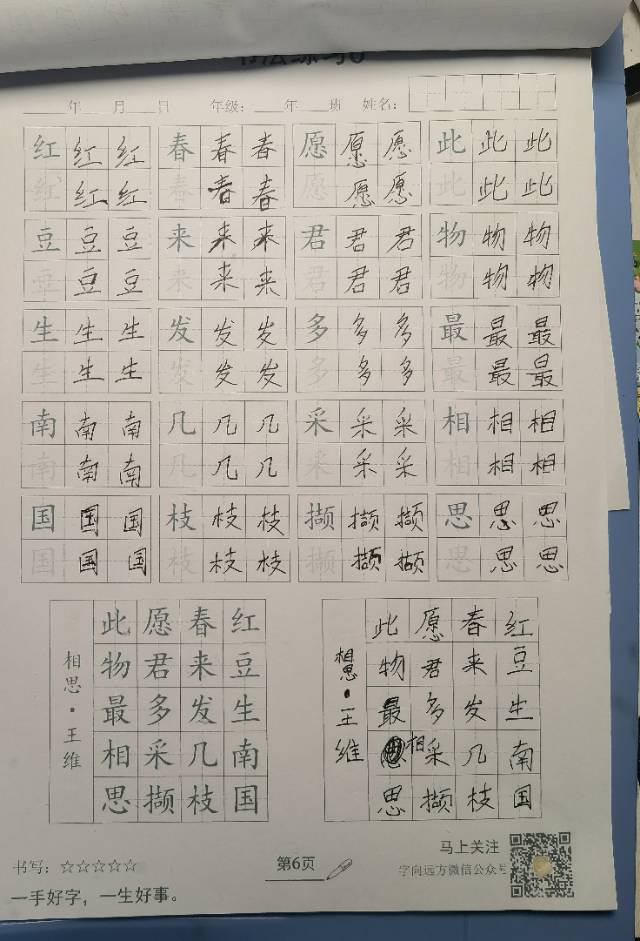 年 月 日 年级: 年 班 姓名:
红 红 红 春 春 春 愿 愿 愿 此 此 此
红 红 红 春 春 春 愿 愿 愿 此 此 此
豆 豆 豆 来 来 来 君 君 君 物 物 物
豆 豆 来 来 来 君 君 君 物 物 物
生 生 生 发 发 发 多 多 多 最 最 最
生 生 生 发 发 发 多 多 多 最 最 最
南 南 南 几 几 几 采 采 采 相 相 相
南 南 南 几 几 几 采 采 采 相 相 相
国 国 国 枝 枝 枝 撷 撷 撷 思 思 思
国 国 国 枝 枝 枝 撷 撷 撷 思 思 思
相思·王维
红豆生南国
春来发几枝
愿君多采撷
此物最相思
相思·王维
红豆生南国
春来发几枝
愿君多采撷
此物最相思
书写：☆☆☆☆☆
一手好字，一生好事。
第6页
马上关注
字向远方微信公众号